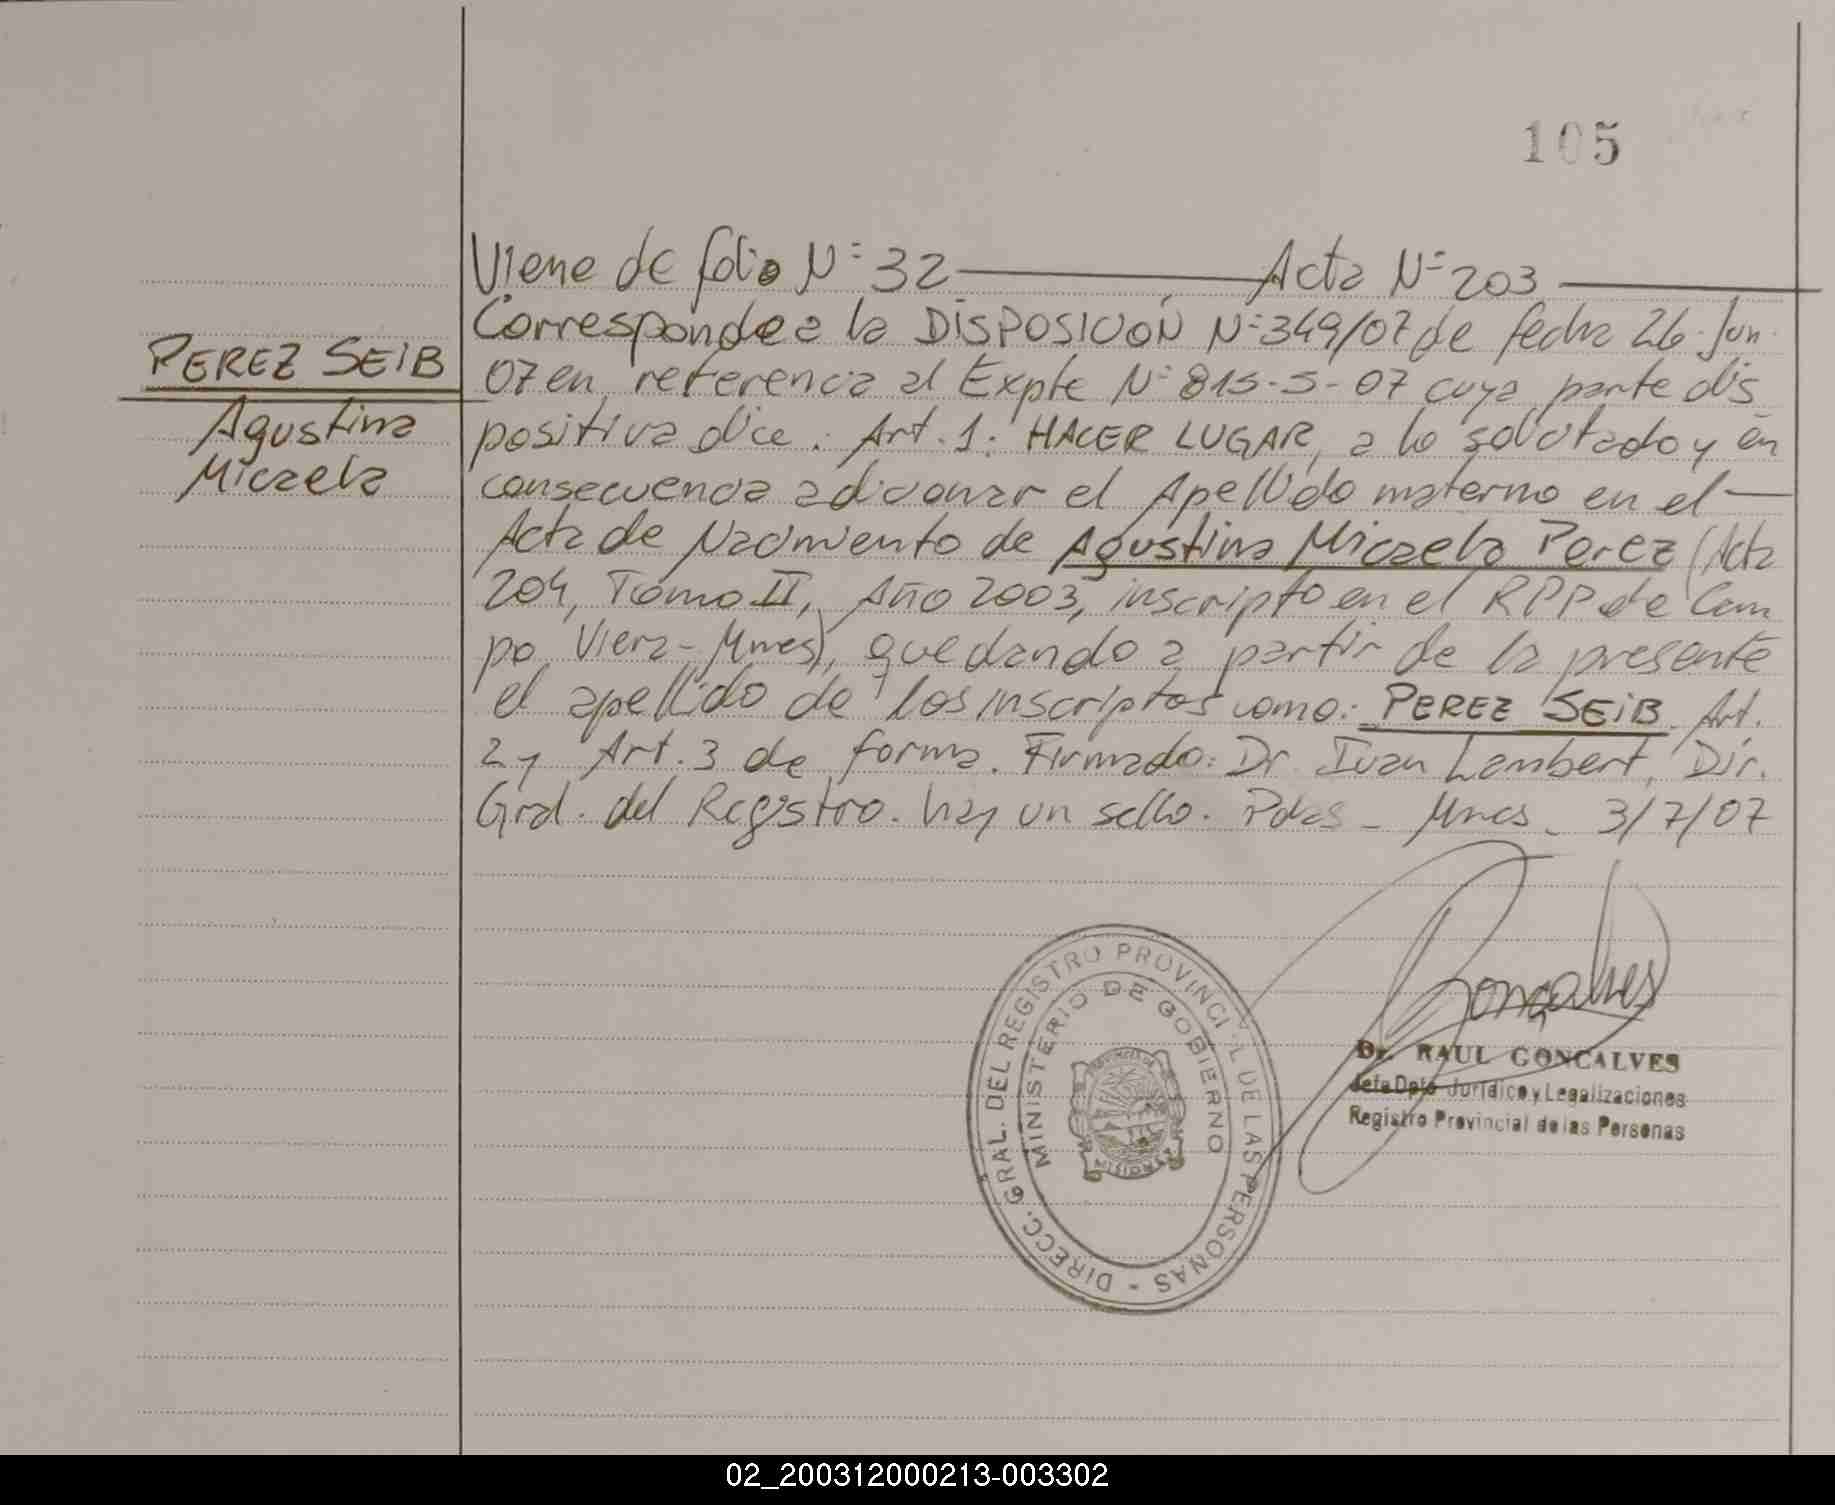 105
Viene de folio Nº 32 — Acta Nº 203 —
PEREZ SEIB
Agustina
Micaela
Corresponde a la DISPOSICIÓN Nº 349/07 de fecha 26-Jun-
07 en referencia al Expte Nº 815-S-07 cuya parte dis
positiva dice: Art. 1: HACER LUGAR, a lo solicitado y en
consecuencia adicionar el Apellido materno en el —
Acta de Nacimiento de Agustina Micaela Perez (Acta
204, Tomo II, Año 2003, inscripto en el RPP de Cam
po Viera - Mnes), quedando a partir de la presente
el apellido de los inscriptos como: PEREZ SEIB. Art.
2 y Art. 3 de forma. Firmado: Dr. Ivan Lambert, Dir.
Gral. del Registro. hay un sello. Pdas - Mnes - 3/7/07
DIRECC. GRAL. DEL REGISTRO PROVINCIAL DE LAS PERSONAS -
MINISTERIO DE GOBIERNO
PROVINCIA DE
MISIONES
Gonçalves
Dr. RAUL GONCALVES
Jefe Dpto Jurídico y Legalizaciones
Registro Provincial de las Personas
02_200312000213-003302